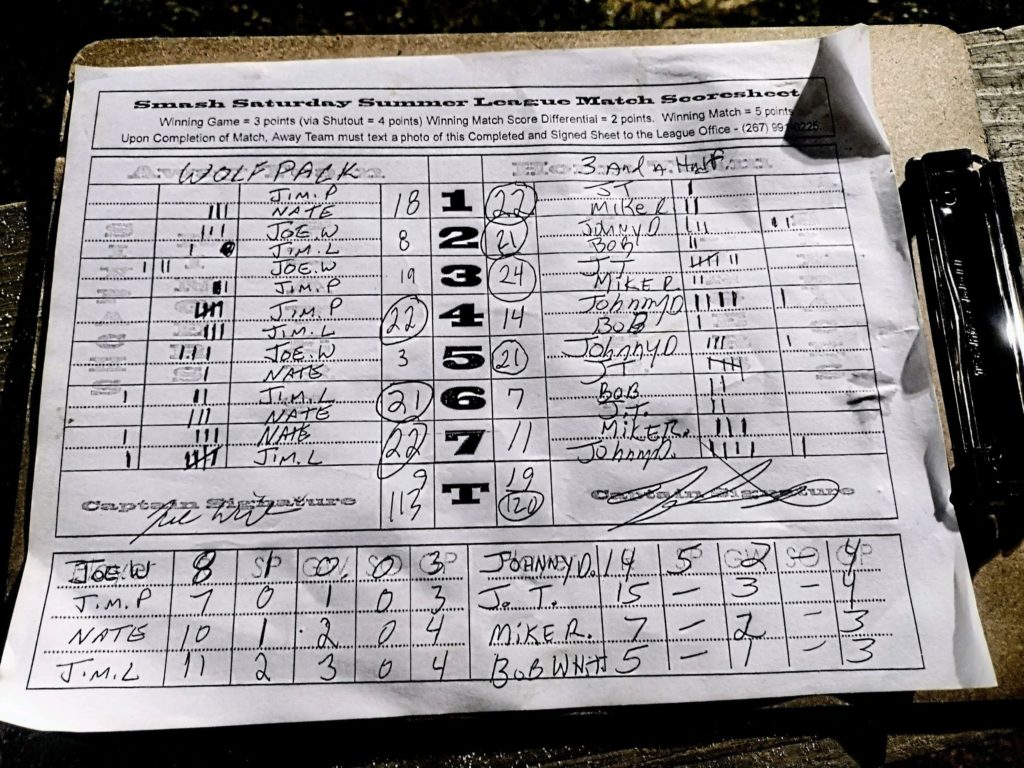 Smash Saturday Summer League Match Scoresheet
Winning Game = 3 points (via Shutout = 4 points) Winning Match Score Differential = 2 points. Winning Match = 5 points
Upon Completion of Match, Away Team must text a photo of this Completed and Signed Sheet to the League Office - (267) 991-6225.
WOLFPACK 3 And A Half
Jim.P 18 1 22 J.T.
NATE Mike R
JOE.W 8 2 21 Johnny D
Jim.L BOB
JOE.W 19 3 24 J.T.
Jim.P MIKER
Jim.P 22 4 14 Johnny D
Jim.L BOB
JOE.W 3 5 21 Johnny D
NATE J.T.
Jim.L 21 6 7 BOB
NATE J.T.
NATE 22 7 11 MIKE R.
Jim.L Johnny D.
9 T 19
Captain Signature 113 120 Captain Signature
JOE.W 8 SP 0 0 3 JOHNNY D. 14 5 2 SO 4
J.M.P 7 0 1 0 3 J. T. 15 – 3 – 4
NATE 10 1 2 0 4 MIKE R. 7 – 2 – 3
J.M.L 11 2 3 0 4 BOB WHIT 5 – 1 – 3